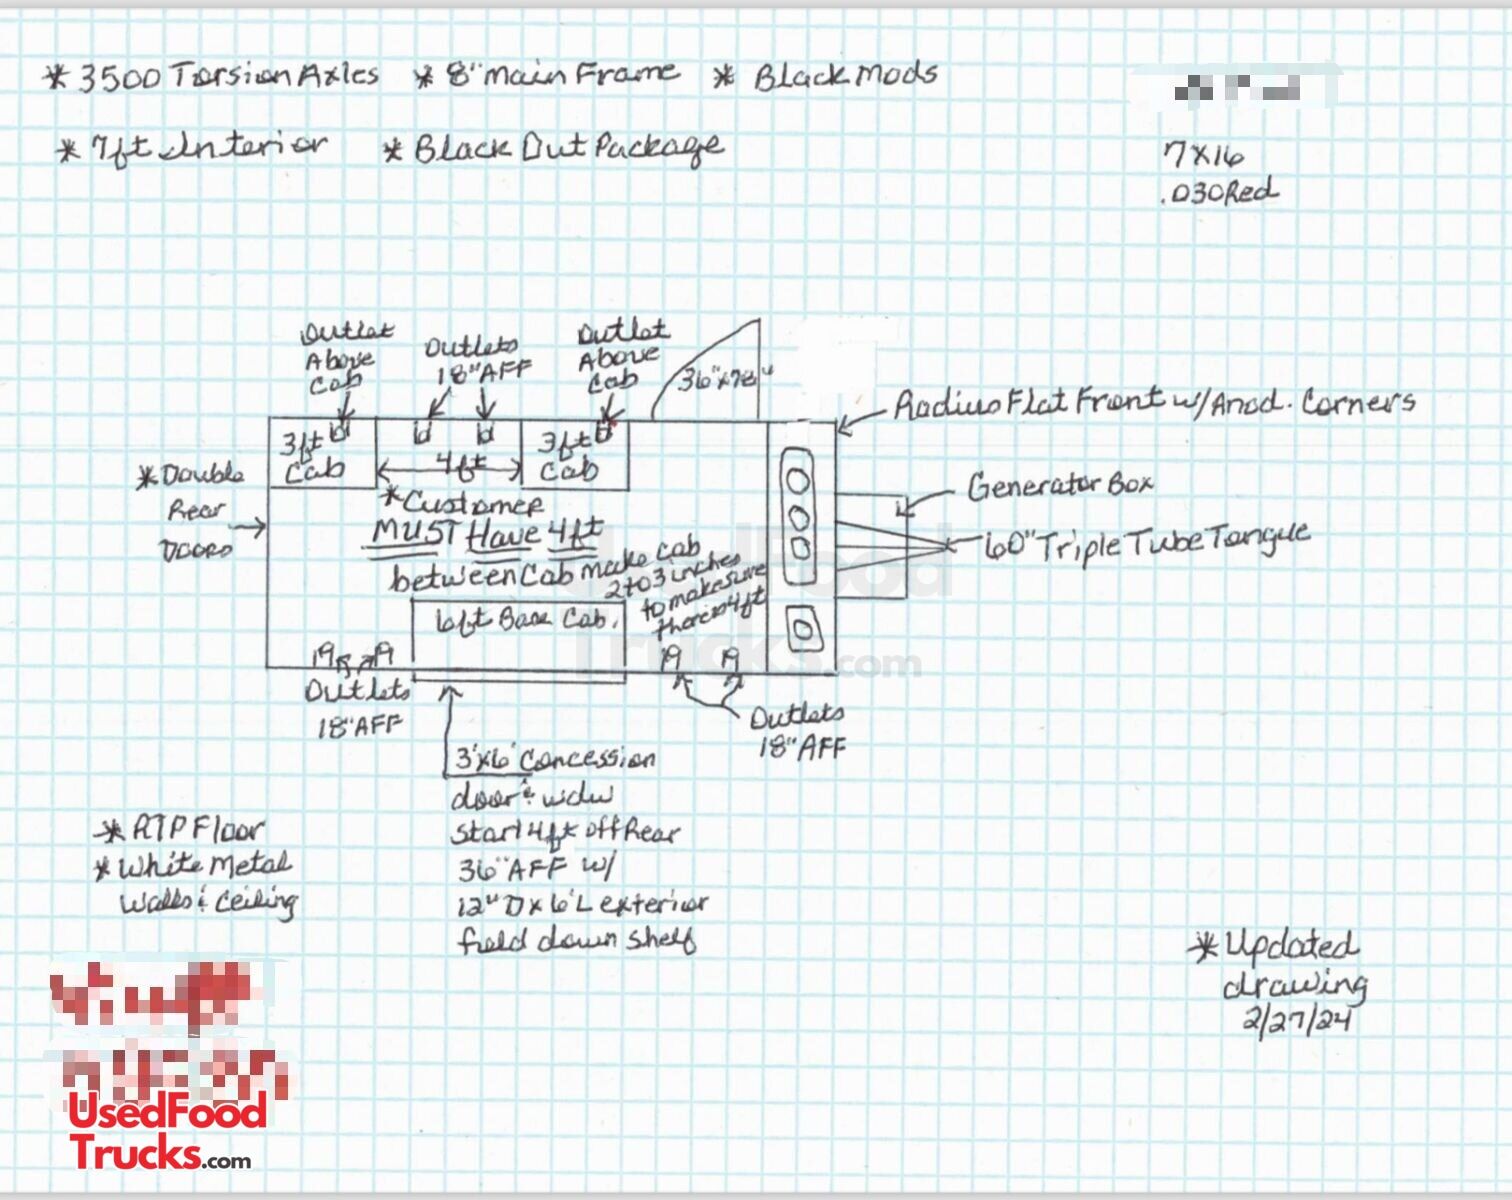 * 3500 Torsion Axles * 8" Main Frame * Black Mods
* 7ft Interior * Black Out Package
7X16
.030 Red
Outlet
Above
Cab
Outlets
18" AFF
Outlet
Above
Cab
36"x78"
Radius Flat Front w/Anod. Corners
3ft
Cab
4ft
3ft
Cab
* Double
Rear
Doors
Generator Box
* Customer
MUST Have 4ft
between Cab make cab
2 to 3 inches
to make sure
there is 4ft
60" Triple Tube Tongue
6ft Base Cab.
Outlets
18" AFF
Outlets
18" AFF
3'x6' Concession
door & wdw
start 4ft off Rear
36" AFF w/
12" D x 6' L exterior
fold down shelf
* ATP Floor
* White Metal
Walls & Ceiling
* Updated
drawing
2/27/24
UsedFood
Trucks.com
UsedFood
Trucks.com